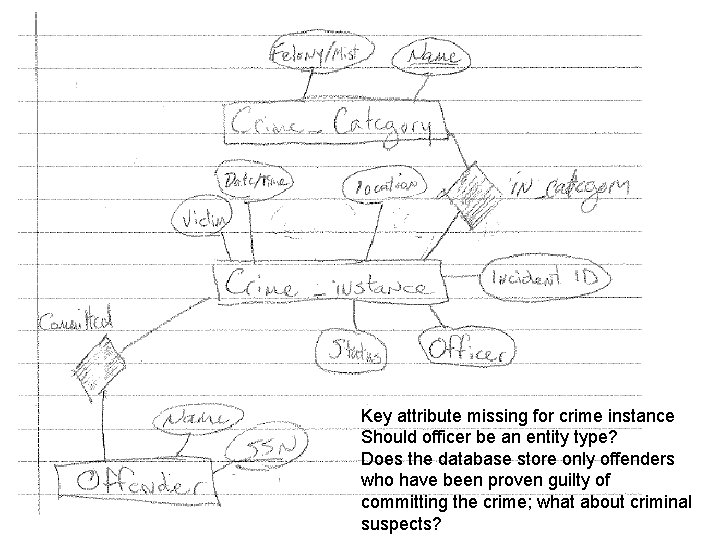 Felony/Mist
Name
Crime_Category
Date/Time
location
in_category
Victim
Crime_instance
Incident ID
Committed
Status
Officer
Name
SSN
Offender
Key attribute missing for crime instance
Should officer be an entity type?
Does the database store only offenders
who have been proven guilty of
committing the crime; what about criminal
suspects?